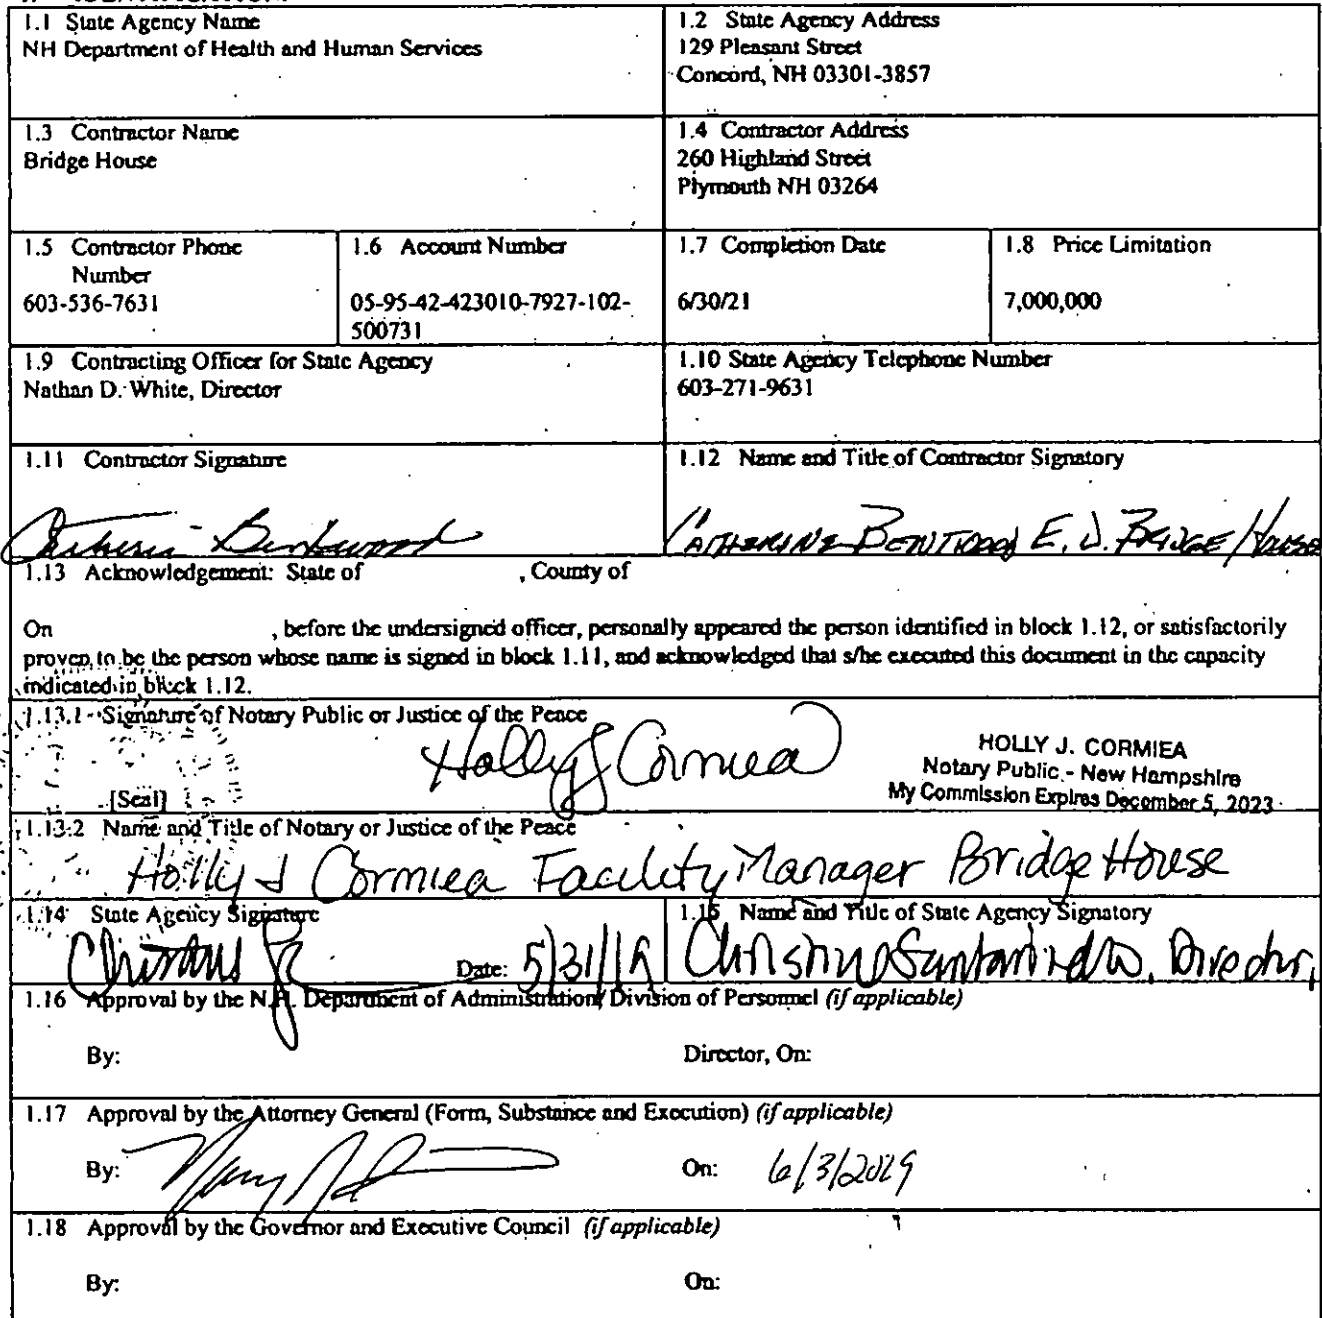 1.1 State Agency Name
NH Department of Health and Human Services
1.2 State Agency Address
129 Pleasant Street
Concord, NH 03301-3857
1.3 Contractor Name
Bridge House
1.4 Contractor Address
260 Highland Street
Plymouth NH 03264
1.5 Contractor Phone
Number
603-536-7631
1.6 Account Number
05-95-42-423010-7927-102-
500731
1.7 Completion Date
6/30/21
1.8 Price Limitation
7,000,000
1.9 Contracting Officer for State Agency
Nathan D. White, Director
1.10 State Agency Telephone Number
603-271-9631
1.11 Contractor Signature
1.12 Name and Title of Contractor Signatory
CATHERINE E.D. BRIDGE HOUSE
1.13 Acknowledgement: State of , County of
On , before the undersigned officer, personally appeared the person identified in block 1.12, or satisfactorily
proven to be the person whose name is signed in block 1.11, and acknowledged that s/he executed this document in the capacity
indicated in block 1.12.
1.13.1 Signature of Notary Public or Justice of the Peace
Holly J Cormiea
HOLLY J. CORMIEA
Notary Public - New Hampshire
My Commission Expires December 5, 2023
[Seal]
1.13.2 Name and Title of Notary or Justice of the Peace
Holly J Cormiea Facility Manager Bridge House
1.14 State Agency Signature
Date: 5/31/19
1.15 Name and Title of State Agency Signatory
Director,
1.16 Approval by the N.H. Department of Administration, Division of Personnel (if applicable)
By: Director, On:
1.17 Approval by the Attorney General (Form, Substance and Execution) (if applicable)
By: On: 6/3/2019
1.18 Approval by the Governor and Executive Council (if applicable)
By: On: